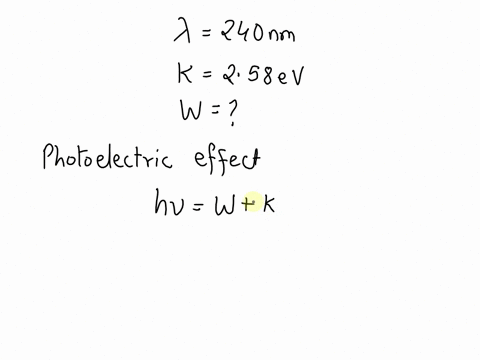 λ = 240 nm
K = 2.58 eV
W = ?
Photoelectric effect
hν = W + K